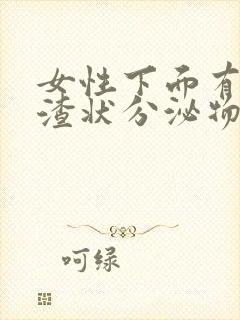 女性下面有
渣状分泌物
呵绿